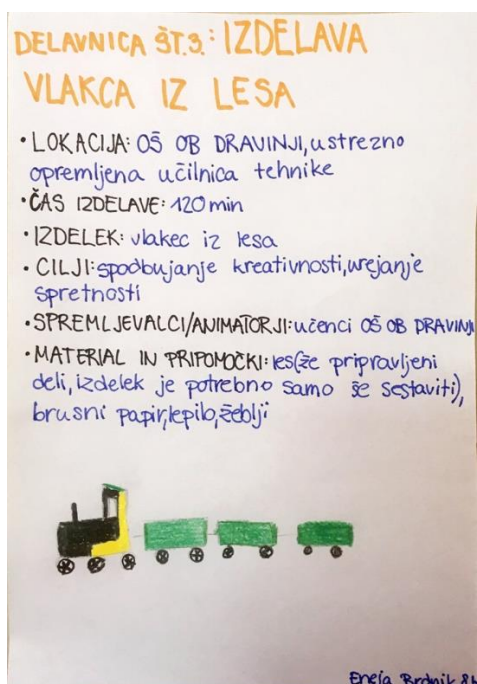 DELAVNICA ŠT.3.: IZDELAVA
VLAKCA IZ LESA
• LOKACIJA: OŠ OB DRAVINJI, ustrezno
opremljena učilnica tehnike
• ČAS IZDELAVE: 120 min
• IZDELEK: vlakec iz lesa
• CILJI: spodbujanje kreativnosti, urejanje
spretnosti
• SPREMLJEVALCI/ANIMATORJI: učenci OŠ OB DRAVINJI
• MATERIAL IN PRIPOMOČKI: les(že pripravljeni
deli, izdelek je potrebno samo še sestaviti),
brusni papir, lepilo, žeblji
Eneja Brdnik 8.